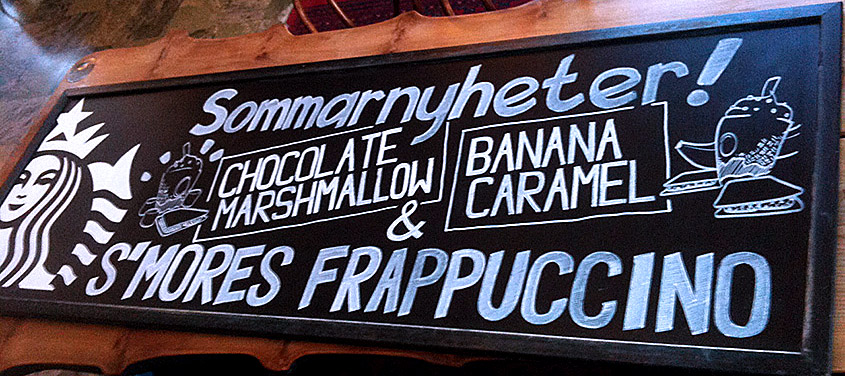 Sommarnyheter!
CHOCOLATE
MARSHMALLOW
BANANA
CARAMEL
&
S'MORES FRAPPUCCINO